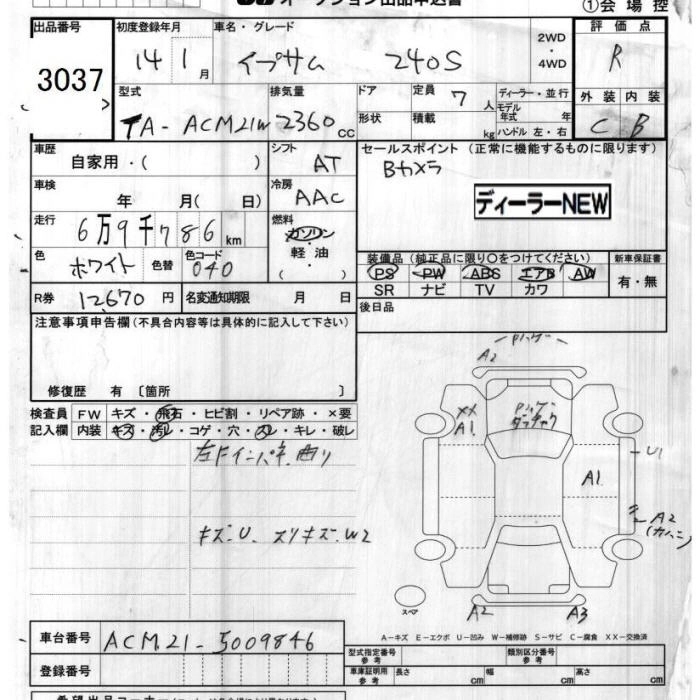 ①会場控
出品番号
3037
初度登録年月
14年 1月
車名・グレード
イプサム 240S
2WD
・
4WD
評価点
R
型式
TA-ACM21W
排気量
2360 cc
ドア
形状
定員 7 人
積載 kg
ディーラー・並行
モデル年式 年
ハンドル 左・右
外装 内装
C B
車歴
自家用・( )
シフト
AT
セールスポイント (正常に機能するものに限ります)
Bカメラ
ディーラーNEW
車検
年 月( 日)
冷房
AAC
走行
6万9千786 km
燃料
ガソリン
・
軽油
( )
色
ホワイト
色替
色コード
040
装備品 (純正品に限り○をつけてください)
PS PW ABS エアB AW
SR ナビ TV カワ
新車保証書
有・無
R券 12,670 円
名変通知期限 月 日
後日品
注意事項申告欄(不具合内容等は具体的に記入して下さい)
修復歴 有 [箇所 ]
検査員
記入欄
FW キズ・飛石・ヒビ割・リペア跡・×要
内装 キズ・汚レ・コゲ・穴・スレ・キレ・破レ
左Fインパネ 曲り
キズ.U. スリキズ.W2
A2
XX
A1
A1
U1
A2
A2
A3
スペア
A-キズ E-エクボ U-凹み W-補修跡 S-サビ C-腐食 XX-交換済
車台番号 ACM21-5009846
登録番号
型式指定番号
参考
類別区分番号
参考
車庫証明用
参考
長さ cm 幅 cm 高さ cm